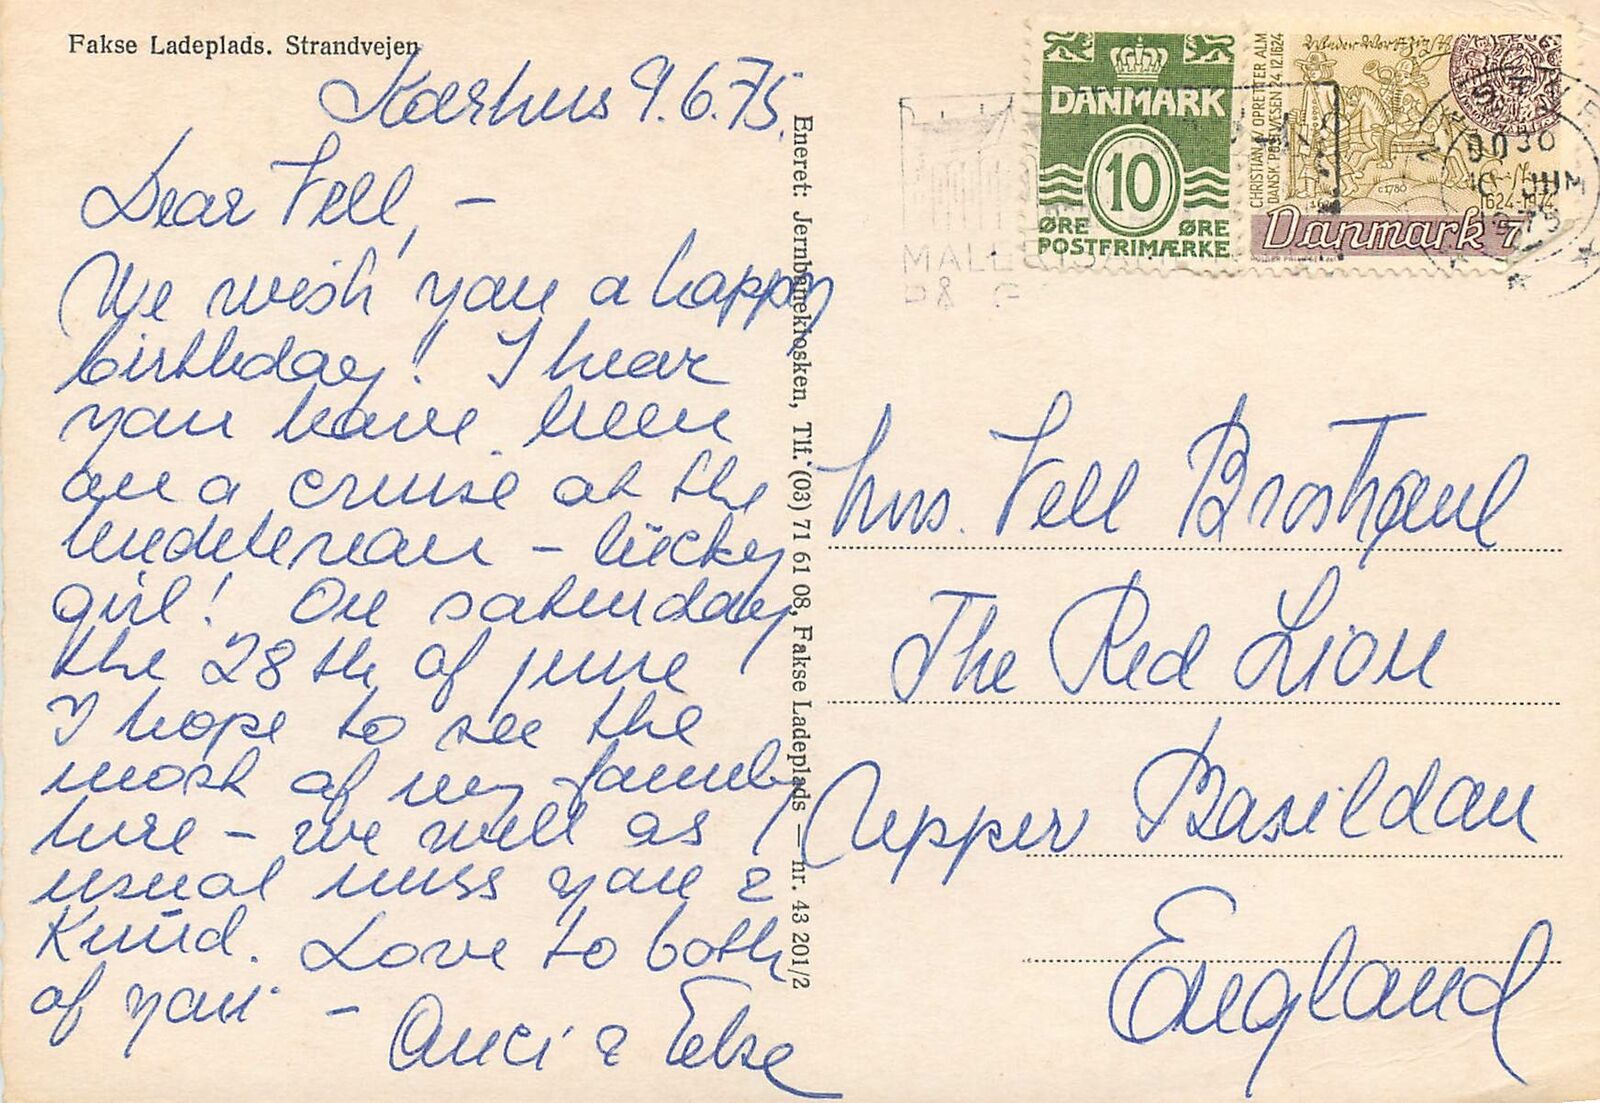 Fakse Ladeplads. Strandvejen
9.6.75.
Dear Vell, –
We wish you a happy
birthday! I hear
you have been
on a cruise at the
– lucky
girl! On saturday
the 28th of june
I hope to see the
most of my family
here – we will as
usual miss you &
Knud. Love to both
of you –
Anci & Ebbe
Eneret: Jernbanekiosken, Tlf. (03) 71 61 08, Fakse Ladeplads — nr. 43 201/2
DANMARK
10
ØRE ØRE
POSTFRIMÆRKE
CHRISTIAN IV OPRETTER ALM
DANSK POSTVÆSEN 24 12.1624
c1780
1624-1974
Danmark 7
1975
Mrs. Vell
The Red Lion
Upper Basildan
England